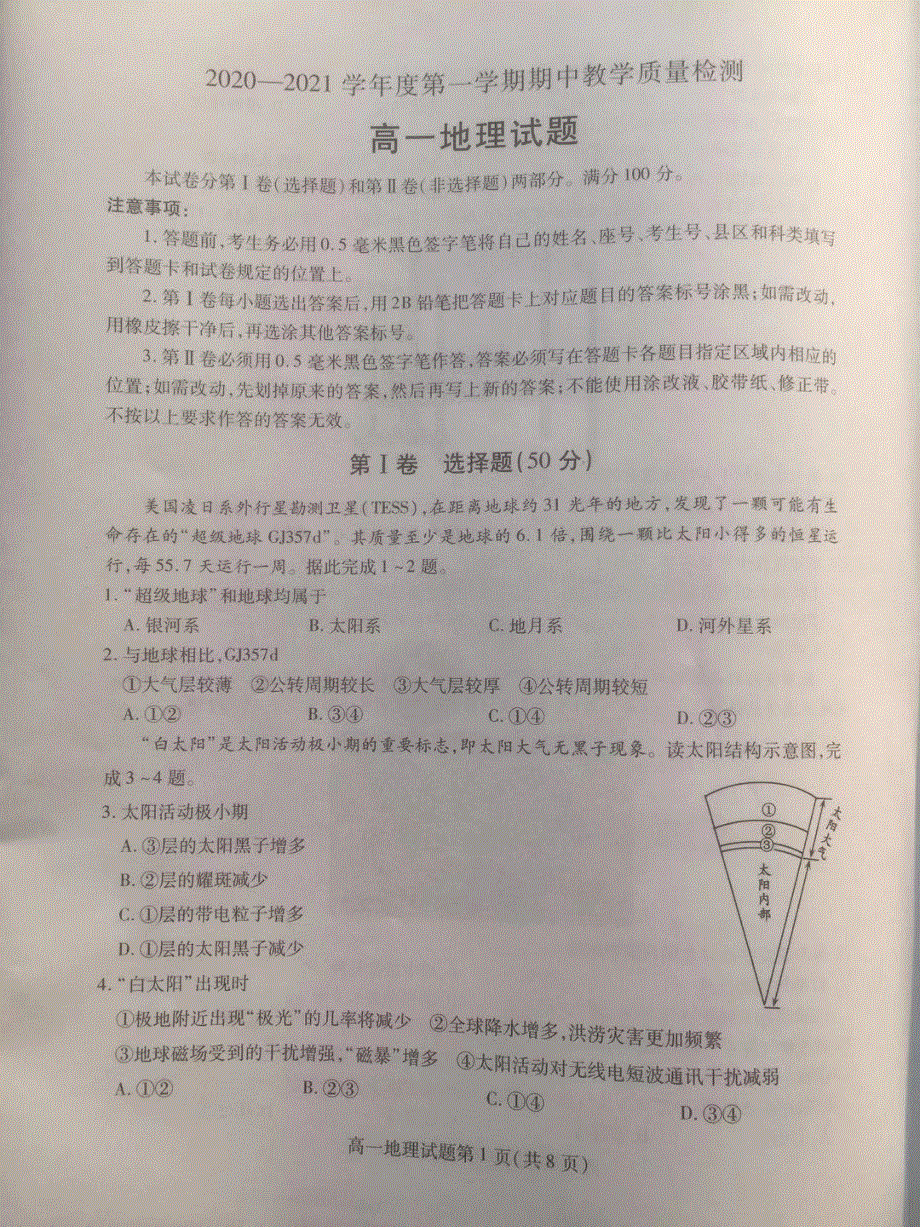 2020—2021学年度第一学期期中教学质量检测
高一地理试题
本试卷分第Ⅰ卷(选择题)和第Ⅱ卷(非选择题)两部分。满分100分。
注意事项:
1.答题前,考生务必用0.5毫米黑色签字笔将自己的姓名、座号、考生号、县区和科类填写
到答题卡和试卷规定的位置上。
2.第Ⅰ卷每小题选出答案后,用2B铅笔把答题卡上对应题目的答案标号涂黑;如需改动,
用橡皮擦干净后,再选涂其他答案标号。
3.第Ⅱ卷必须用0.5毫米黑色签字笔作答,答案必须写在答题卡各题目指定区域内相应的
位置;如需改动,先划掉原来的答案,然后再写上新的答案;不能使用涂改液、胶带纸、修正带。
不按以上要求作答的答案无效。
第Ⅰ卷 选择题(50分)
美国凌日系外行星勘测卫星(TESS),在距离地球约31光年的地方,发现了一颗可能有生
命存在的“超级地球GJ357d”。其质量至少是地球的6.1倍,围绕一颗比太阳小得多的恒星运
行,每55.7天运行一周。据此完成1~2题。
1.“超级地球”和地球均属于
A.银河系 B.太阳系 C.地月系 D.河外星系
2.与地球相比,GJ357d
①大气层较薄 ②公转周期较长 ③大气层较厚 ④公转周期较短
A.①② B.③④ C.①④ D.②③
“白太阳”是太阳活动极小期的重要标志,即太阳大气无黑子现象。读太阳结构示意图,完
成3~4题。
3.太阳活动极小期
A.③层的太阳黑子增多
B.②层的耀斑减少
C.①层的带电粒子增多
D.①层的太阳黑子减少
①
②
③
太阳大气
太阳内部
4.“白太阳”出现时
①极地附近出现“极光”的几率将减少 ②全球降水增多,洪涝灾害更加频繁
③地球磁场受到的干扰增强,“磁暴”增多 ④太阳活动对无线电短波通讯干扰减弱
A.①② B.②③ C.①④ D.③④
高一地理试题第1页(共8页)